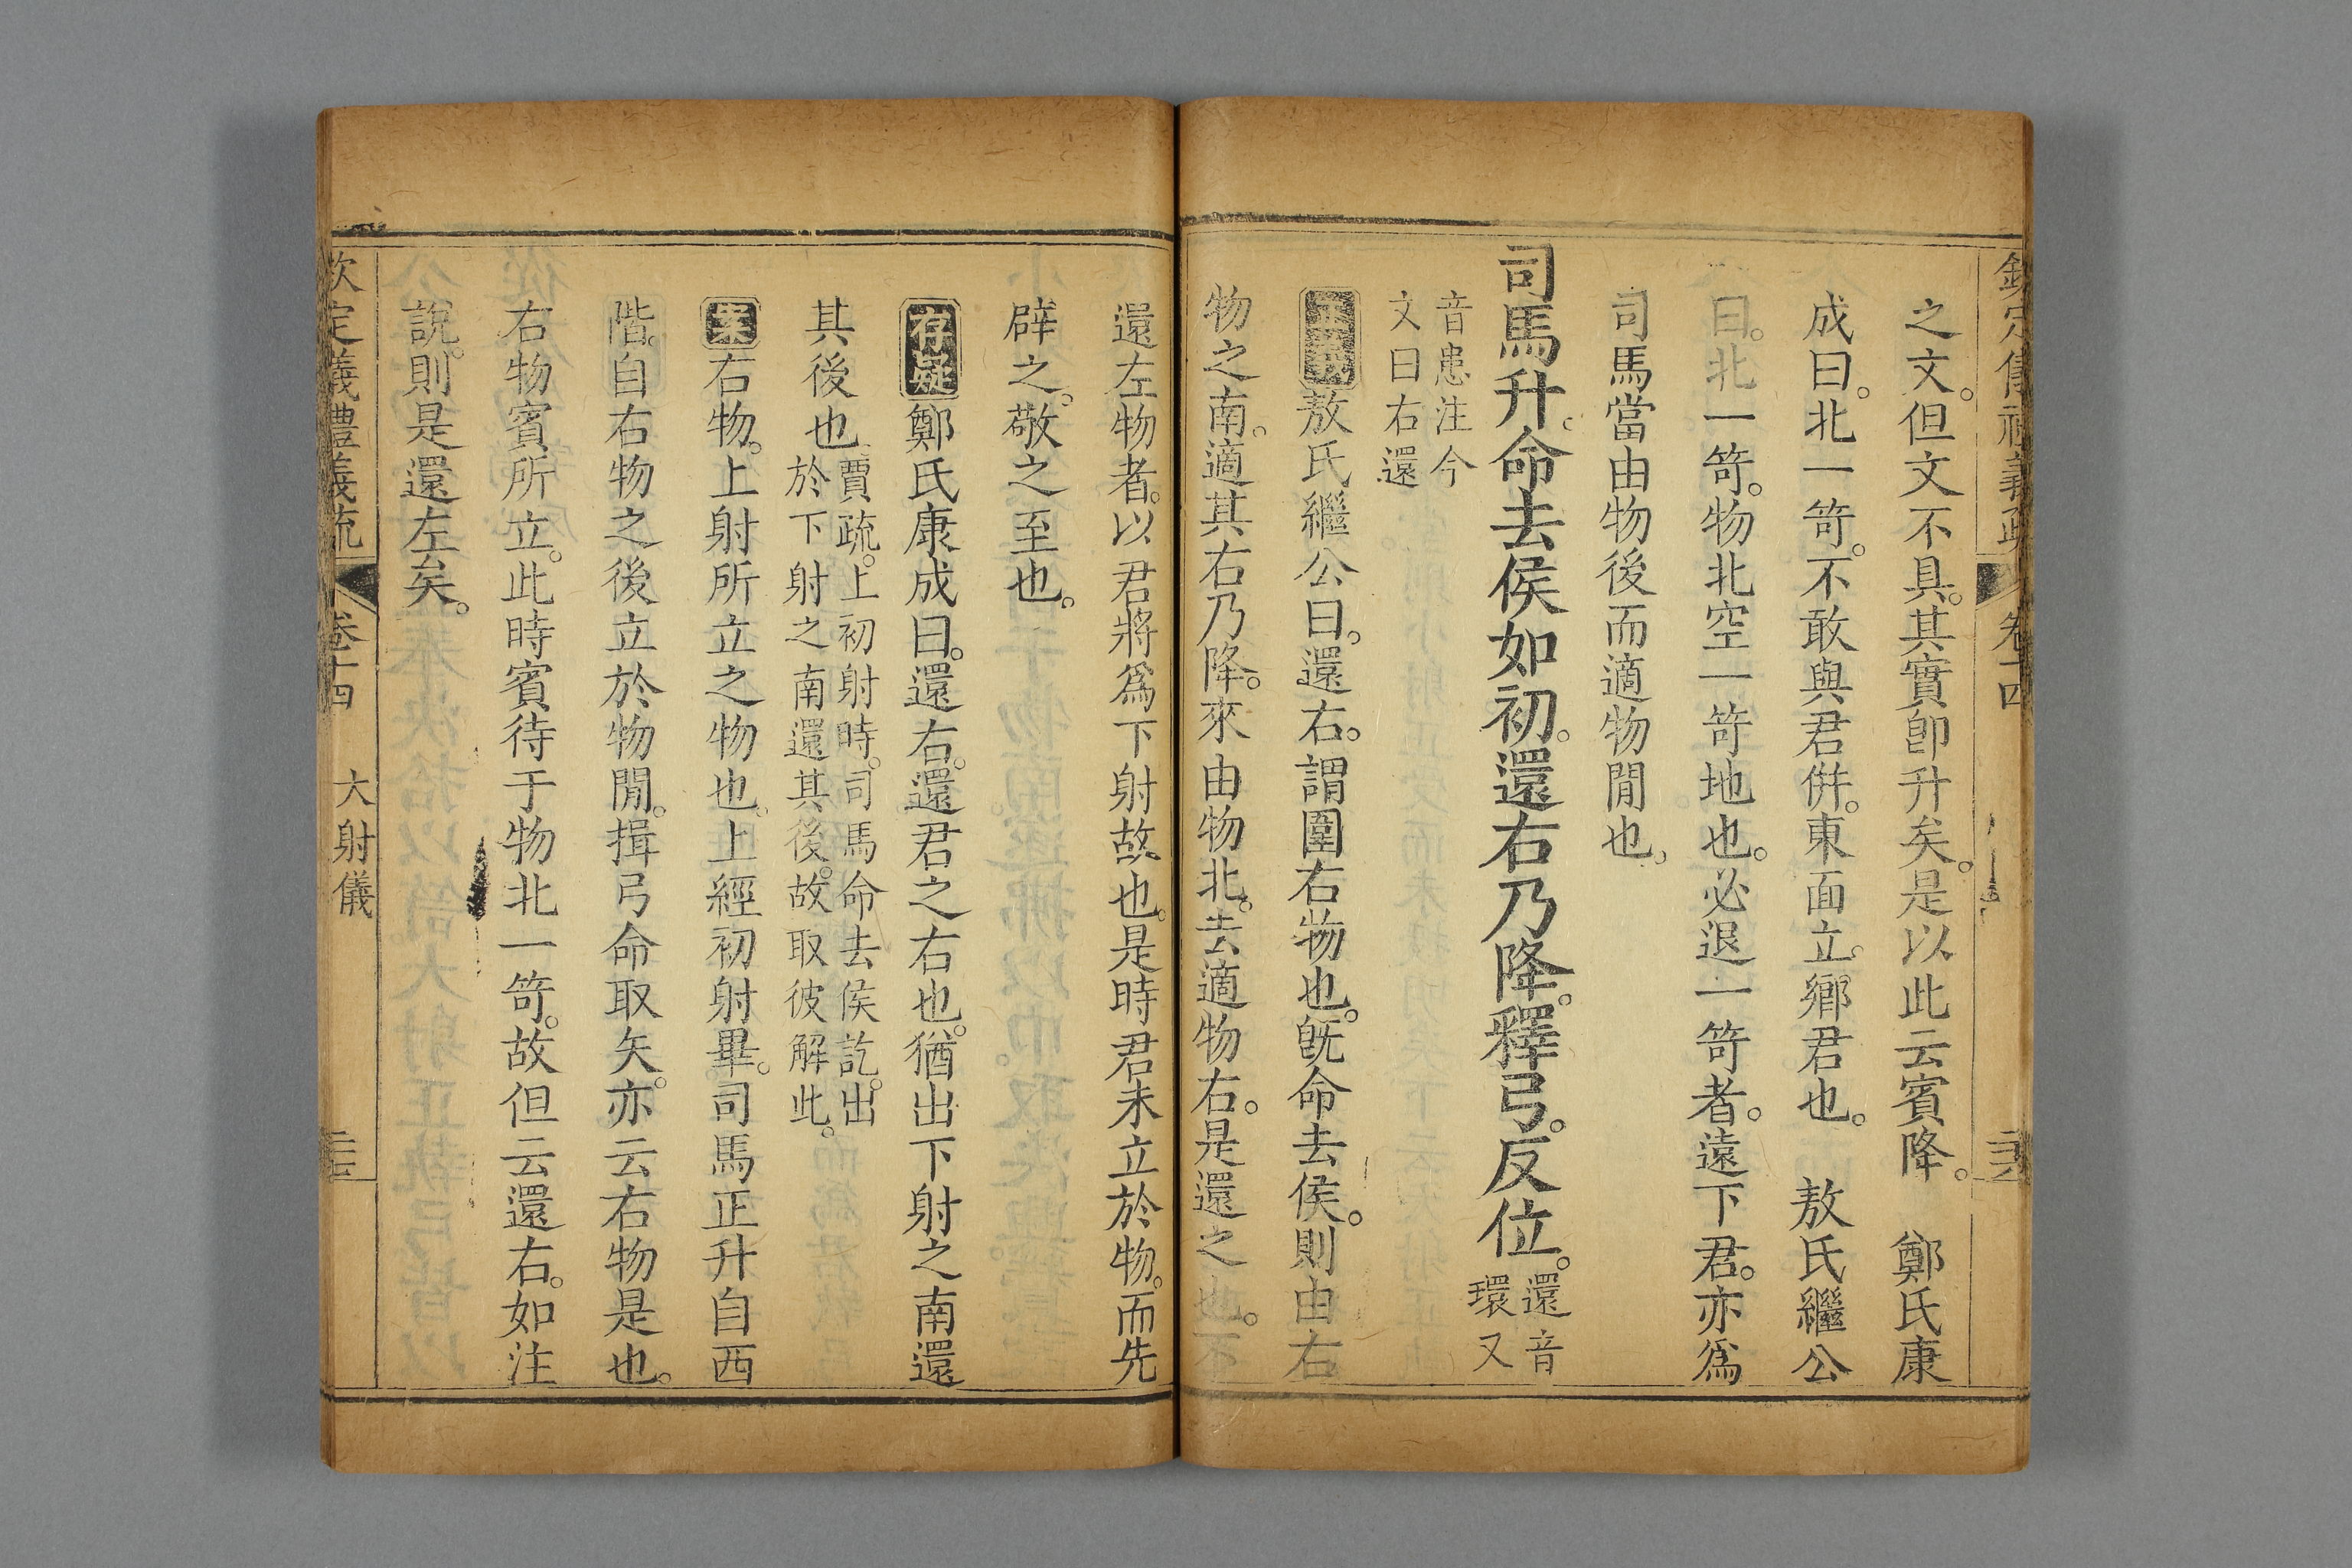 欽定儀禮義疏 卷十四
之文。但文不具。其實卽升矣。是以此云賓降。 鄭氏康
成曰。北一笴。不敢與君併。東面立。鄉君也。 敖氏繼公
曰。北一笴。物北空一笴地也。必退一笴者。遠下君。亦爲
司馬當由物後而適物閒也。
司馬升。命去侯如初。還右乃降。釋弓。反位。還音環又
音患注今文曰右還
正義敖氏繼公曰。還右。謂圍右物也。旣命去侯。則由右
物之南。適其右乃降。來由物北。去適物右。是還之也。不
還左物者。以君將爲下射故也。是時君未立於物。而先
辟之。敬之至也。
存疑鄭氏康成曰。還右。還君之右也。猶出下射之南還
其後也賈疏。上初射時。司馬命去侯訖。出於下射之南還其後。故取彼解此。
案右物。上射所立之物也。上經初射畢。司馬正升自西
階。自右物之後立於物閒。揖弓命取矢。亦云右物是也。
右物賓所立。此時賓待于物北一笴。故但云還右。如注
說。則是還左矣。
欽定儀禮義疏 卷十四 大射儀